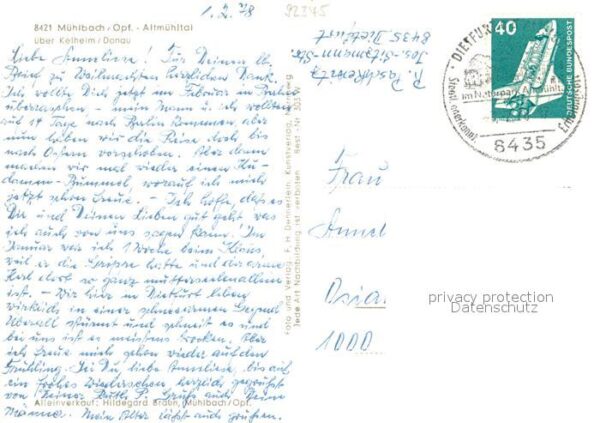 1.2.78
92345
8421 Mühlbach/Opf. - Altmühltal
über Kelheim/Donau
Liebe Anneliese! Für Deinen lb.
Brief zu Weihnachten herzlichen Dank.
Ich wollte Dich jetzt im Februar in Berlin
überraschen - mein Mann u. ich wollten
auf 14 Tage nach Berlin kommen, aber
nun haben wir die Reise doch bis
nach Ostern verschoben. Aber dann
machen wir mal wieder einen Ku-
damm-Bummel, worauf ich mich
jetzt schon freue. - Ich hoffe, daß es
Dir und Deinen Lieben gut geht, was
ich auch von uns sagen kann! Im
Januar war ich 1 Woche beim Klaus,
weil er die Grippe hatte und der arme
Kerl dort so ganz mutterseelenallein
ist. - Wir hier in Dietfurt leben
wirklich in einer schneearmen Gegend.
Überall stürmt und schneit es und
bei uns ist es meistens trocken. Aber
ich freue mich schon wieder auf den
Frühling. Sei Du, liebe Anneliese, bis auf
ein frohes Wiedersehen, herzlich gegrüßt
von Deiner Ruth P. Grüße auch Deine
Männer. Mein Alter läßt auch grüßen.
Alleinverkauf: Hildegard Braun, Mühlbach/Opf.
Foto und Verlag: F. H. Dehnerlein, Kunstverlag,
Jede Art Nachbildung ist verboten Best.-Nr. 305
R. Paschkowitz
Jos.-Sitzmann-Str.
8435 Dietfurt
40
DEUTSCHE BUNDESPOST
DIETFUR
im Naturpark Altmühlt
Staatl. anerkannter
Erholungsort
8435
Frau
Annel
Osia
1000
privacy protection
Datenschutz